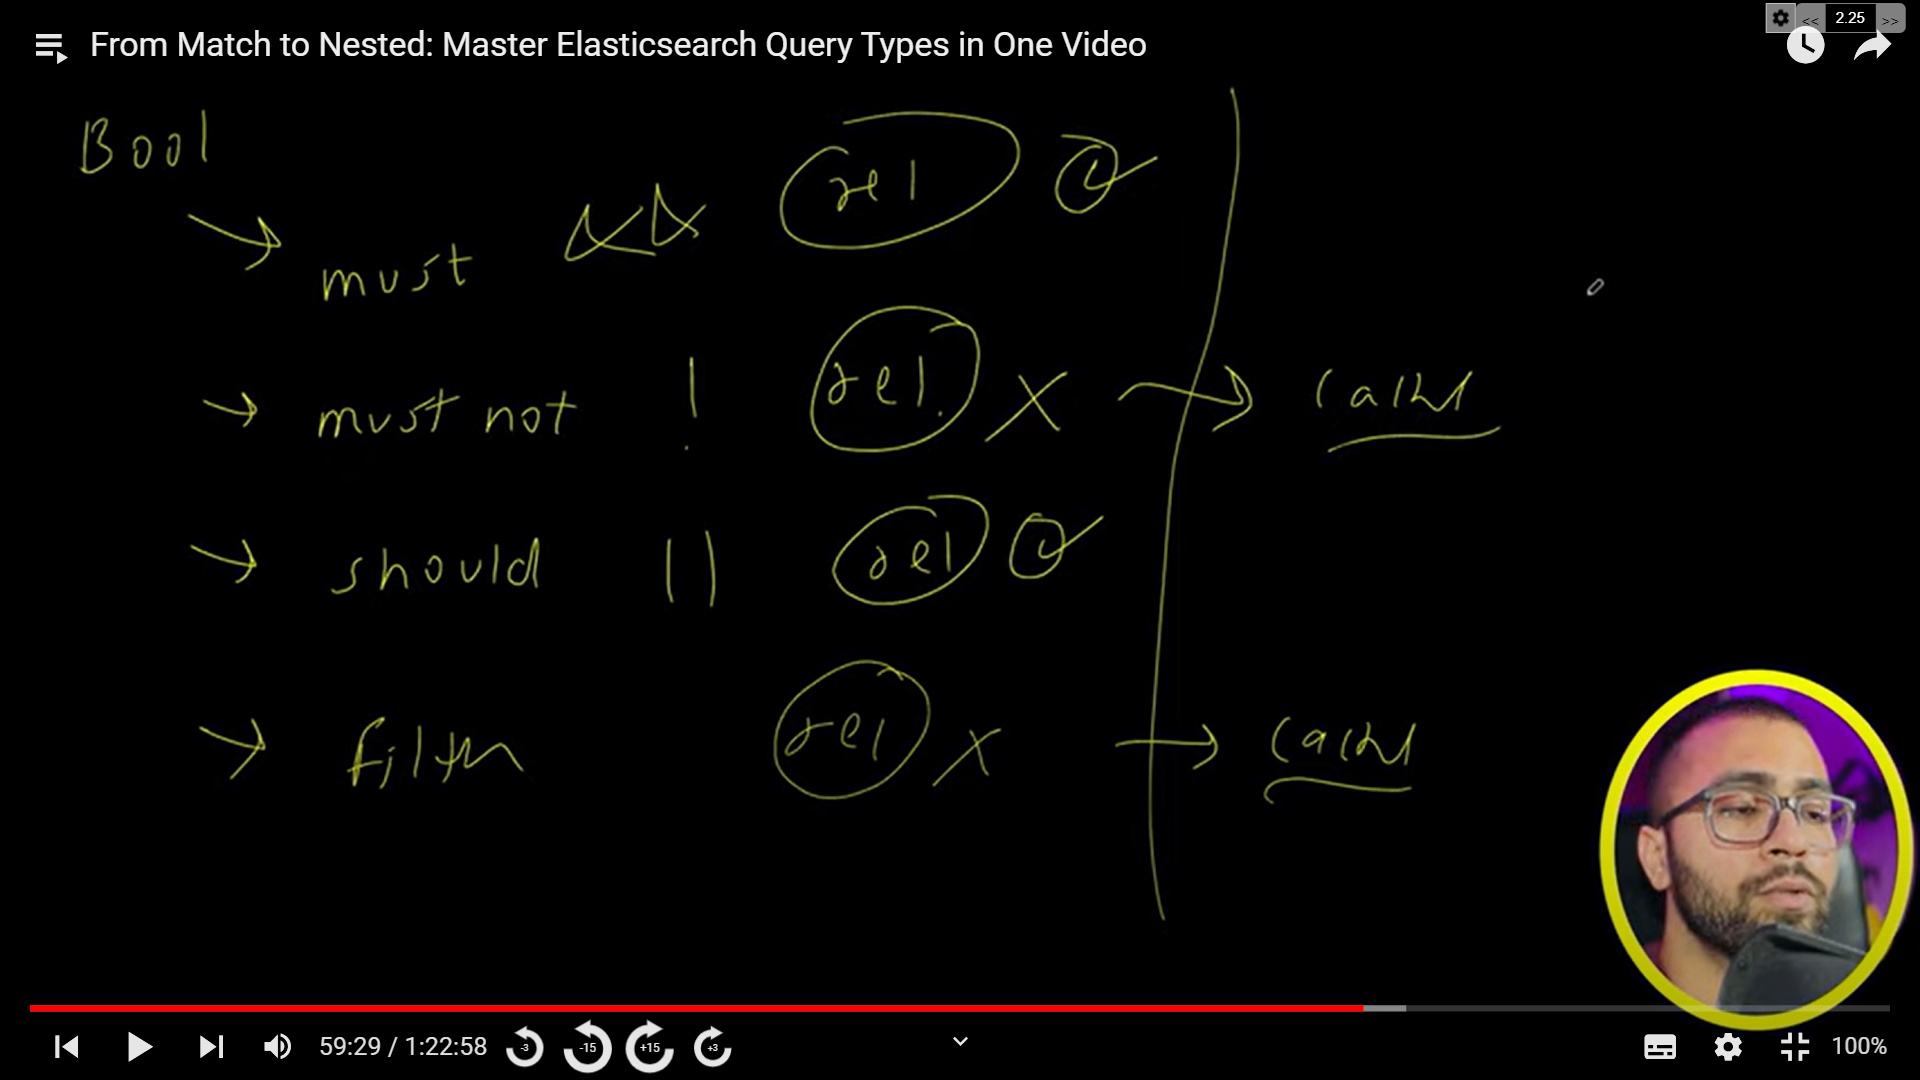 2.25
From Match to Nested: Master Elasticsearch Query Types in One Video
Bool
must && rel
must not ! rel. X cache
should || rel
filter rel X cache
59:29 / 1:22:58
-3
-15
+15
+3
100%